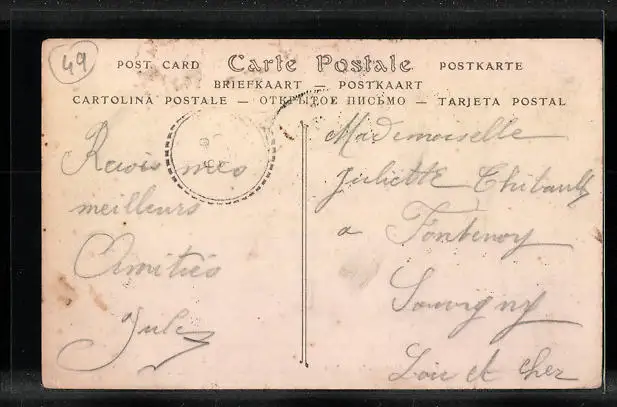 49
POST CARD Carte Postale POSTKARTE
BRIEFKAART — POSTKAART
CARTOLINA POSTALE — ОТКРЫТОЕ ПИСЬМО — TARJETA POSTAL
Mademoiselle
Juliette Thibault
a Fontenoy
Souvigny
Loir et Cher
mes
meilleurs
Amitiés
Jules